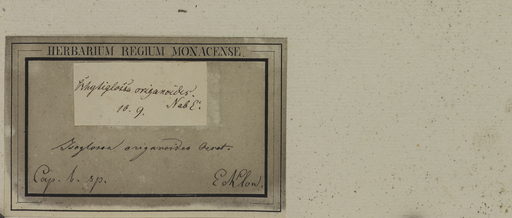 HERBARIUM REGIUM MONACENSE.
Rhytiglossa origanoides.
10. 9. Nab E.
origanoides
Cap. b. sp. Ecklon.